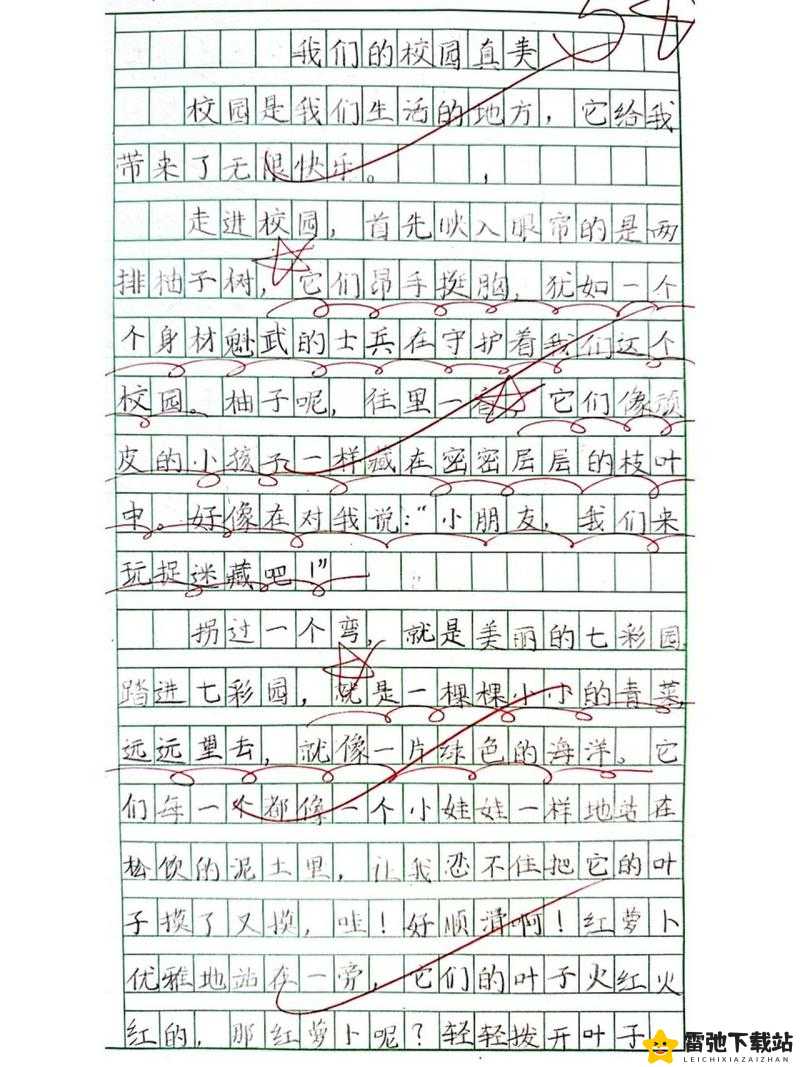 5☆
我们的校园真美
校园是我们生活的地方，它给我
带来了无限快乐。
走进校园，首先映入眼帘的是两
排柚子树，它们昂手挺胸，犹如一个
个身材魁武的士兵在守护着我们这个
校园。柚子呢，往里一看，它们像顽
皮的小孩子一样藏在密密层层的枝叶
中。好像在对我说：“小朋友，我们来
玩捉迷藏吧！”
拐过一个弯，就是美丽的七彩园，
踏进七彩园，就是一棵棵小小的青菜，
远远望去，就像一片绿色的海洋。它
们每一个都像一个小娃娃一样地站在
松饮的泥土里，让我忍不住把它的叶
子摸了又摸，哇！好顺滑啊！红萝卜
优雅地站在一旁，它们的叶子火红火
红的，那红萝卜呢？轻轻拨开叶子
雷弛下载站
LEICHIXIAZAIZHAN